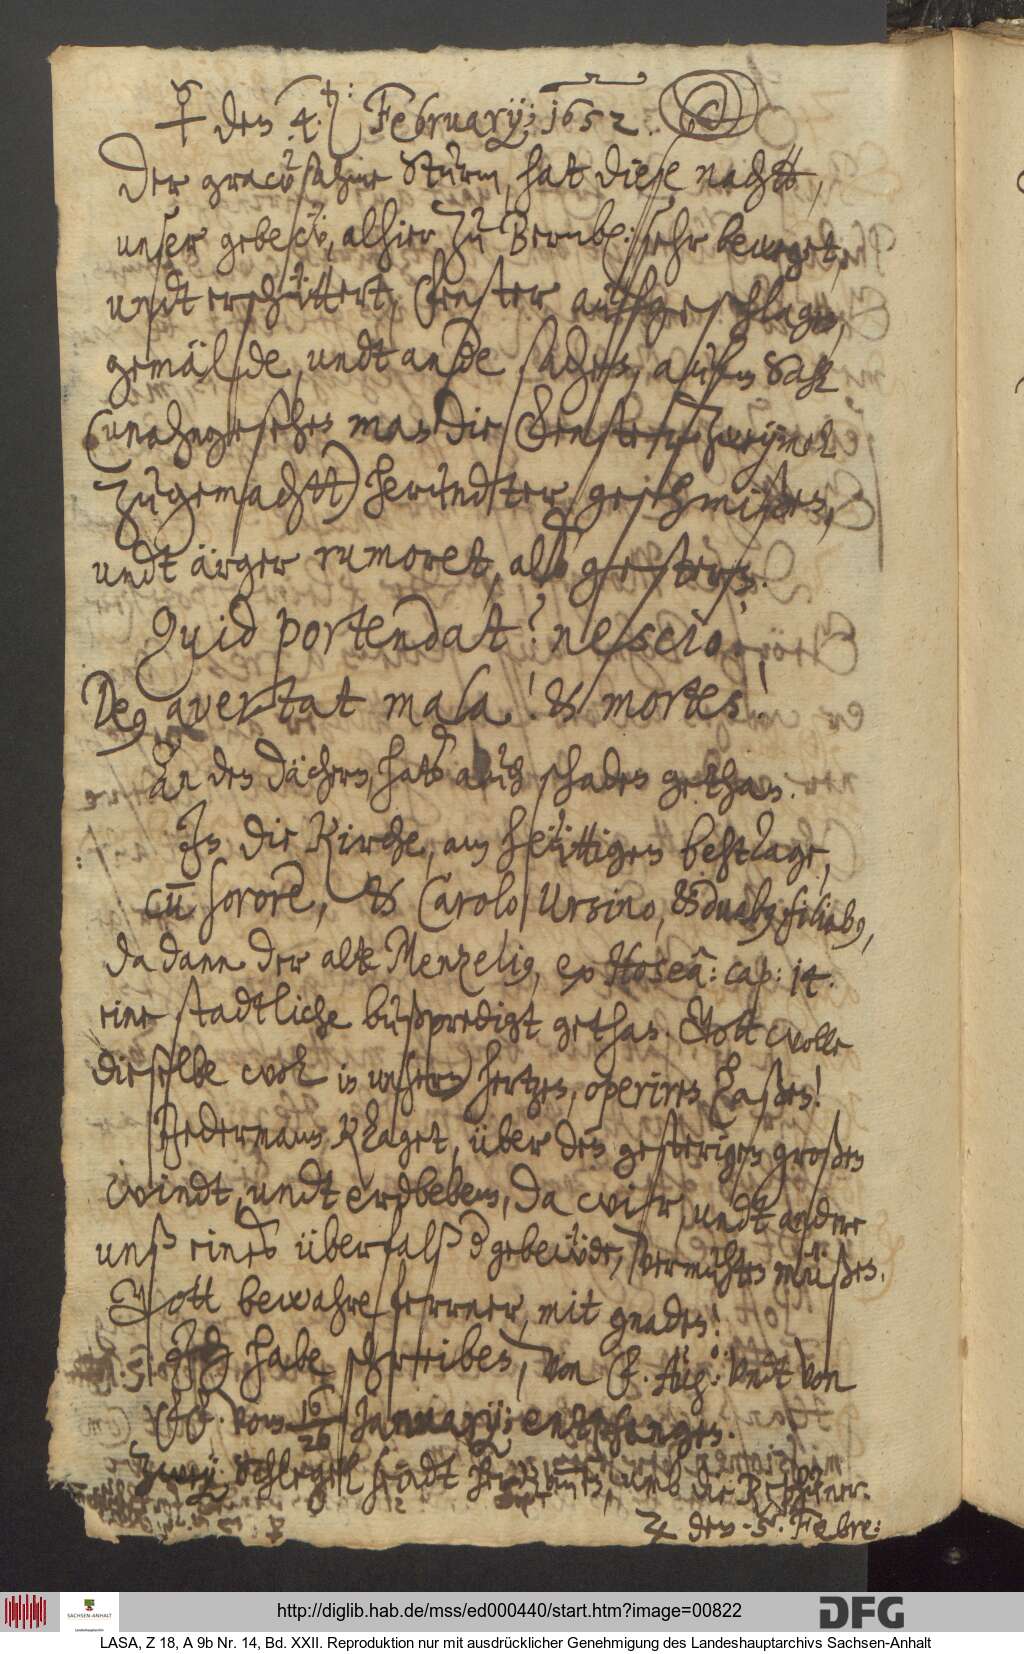 ☿ den 4.t: February: 1652.
Der grawsahme Sturm, hat diese nachtt,
unser gebew, alhier zu Bernb: sehr beweget,
undt erschüttert, Fenster aufgeschlagen,
gemälde, undt ande sachen, aufm Sahl
(unahngesehen man die Fenster zweymal
zugemachtt) herundter geschmißen,
undt ärger rumoret, alß gestern.
Quid portendat? nescio!
De9 avertat mala! & mortes!
An den dächern, hats auch schaden gethan.
In die Kirche, am heüttigen behttage,
cum sorore, & Carolo Ursino, & duab9 filiab9,
da dann der alte Menzeli9, ex Hoseâ: cap: 14.
eine stadtliche bußpredigt gethan. Gott wolle
dieselbe wol in unsern hertzen, operiren laßen!
Jederman klaget, über den gesterigen großen
windt, undt erdbeben, da wir undt andere
unß eines überfalß d gebewde, vermuhten müßen.
Gott bewahre ferrner, mit gnaden!
Ich habe schreiben, von F. Aug: undt von
vom 16/26 January: entpfangen.
Zwey Schlegel hadt
♃ den 5. Febre:
http://diglib.hab.de/mss/ed000440/start.htm?image=00822
SACHSEN-ANHALT
DFG
LASA, Z 18, A 9b Nr. 14, Bd. XXII. Reproduktion nur mit ausdrücklicher Genehmigung des Landeshauptarchivs Sachsen-Anhalt